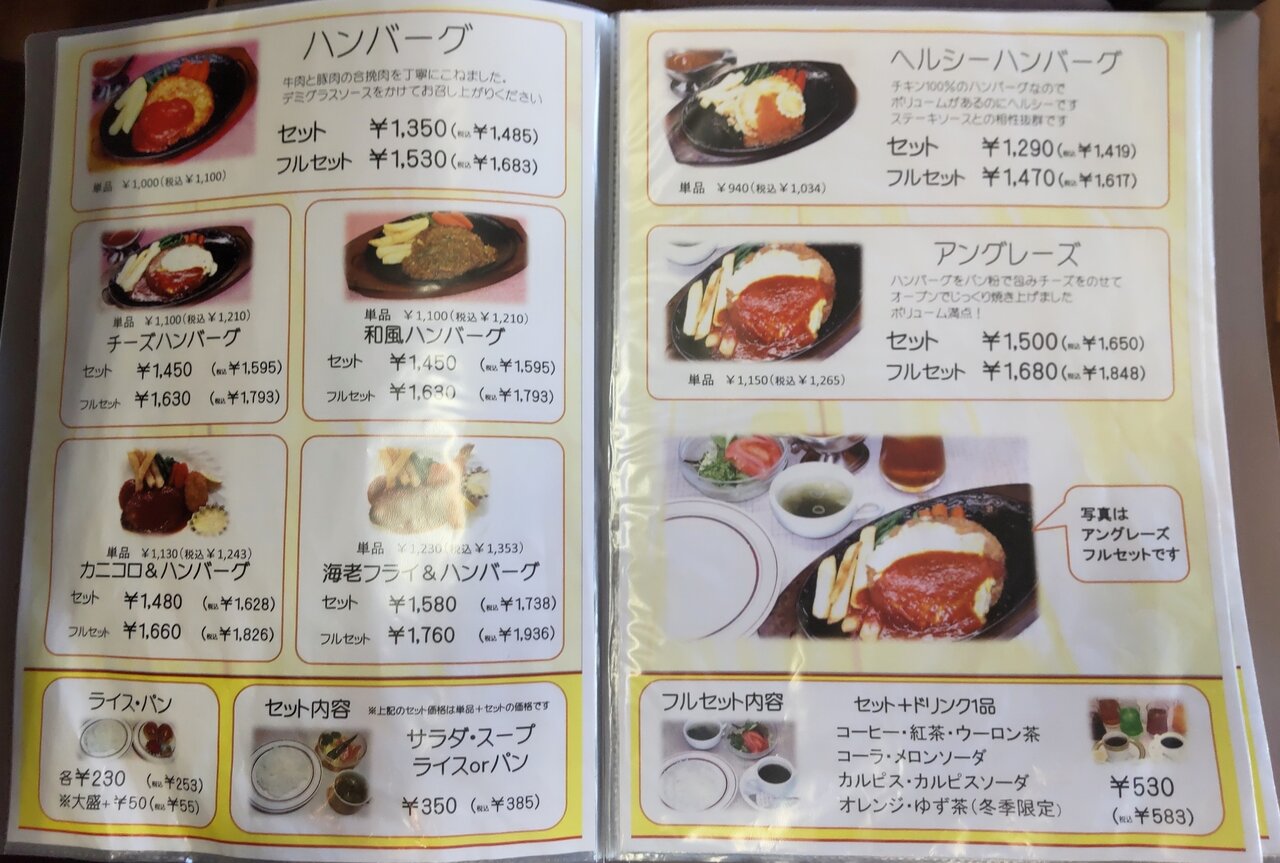 ハンバーグ
牛肉と豚肉の合挽肉を丁寧にこねました。
デミグラスソースをかけてお召し上がりください
セット ￥1,350(税込￥1,485)
フルセット ￥1,530(税込￥1,683)
単品 ￥1,000(税込￥1,100)
単品 ￥1,100(税込￥1,210)
チーズハンバーグ
セット ￥1,450 (税込￥1,595)
フルセット ￥1,630 (税込￥1,793)
単品 ￥1,100(税込￥1,210)
和風ハンバーグ
セット ￥1,450 (税込￥1,595)
フルセット ￥1,630 (税込￥1,793)
単品 ￥1,130(税込￥1,243)
カニコロ＆ハンバーグ
セット ￥1,480 (税込￥1,628)
フルセット ￥1,660 (税込￥1,826)
単品 ￥1,230(税込￥1,353)
海老フライ＆ハンバーグ
セット ￥1,580 (税込￥1,738)
フルセット ￥1,760 (税込￥1,936)
ライス・パン
各￥230 (税込￥253)
※大盛+￥50(税込￥55)
セット内容 ※上記のセット価格は単品＋セットの価格です
サラダ・スープ
ライスorパン
￥350 (税込￥385)
ヘルシーハンバーグ
チキン100％のハンバーグなので
ボリュームがあるのにヘルシーです
ステーキソースとの相性抜群です
セット ￥1,290(税込￥1,419)
フルセット ￥1,470(税込￥1,617)
単品 ￥940(税込￥1,034)
アングレーズ
ハンバーグをパン粉で包みチーズをのせて
オーブンでじっくり焼き上げました
ボリューム満点！
セット ￥1,500(税込￥1,650)
フルセット ￥1,680(税込￥1,848)
単品 ￥1,150(税込￥1,265)
写真は
アングレーズ
フルセットです
フルセット内容
セット＋ドリンク1品
コーヒー・紅茶・ウーロン茶
コーラ・メロンソーダ
カルピス・カルピスソーダ
オレンジ・ゆず茶(冬季限定)
￥530
(税込￥583)